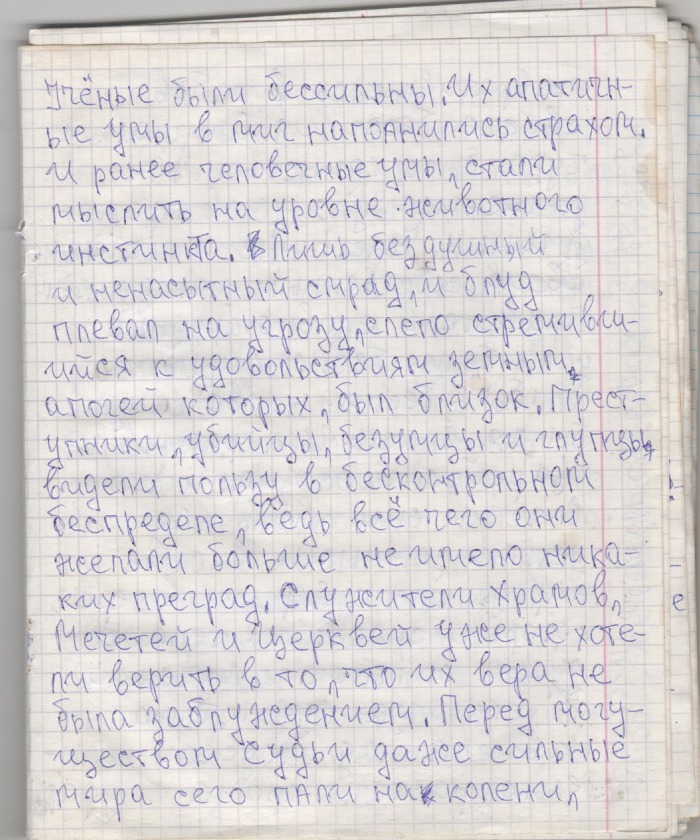 Учёные были бессильны. Их апатичн-
ые умы в миг наполнились страхом.
И ранее человечные умы, стали
мыслить на уровне животного
инстинкта. Лишь бездушный
и ненасытный смрад, и блуд
плевал на угрозу, слепо стремивши-
ийся к удовольствиям земным,
апогей которых, был близок. Прест-
упники, убийцы, безумцы и глупцы,
видели пользу в бесконтрольном
беспределе, ведь всё чего они
желали больше не имело ника-
ких преград. Служители Храмов,
Мечетей и Церквей уже не хоте-
ли верить в то, что их вера не
была заблуждением. Перед могу-
ществом судьи даже сильные
мира сего пали на колени,
е